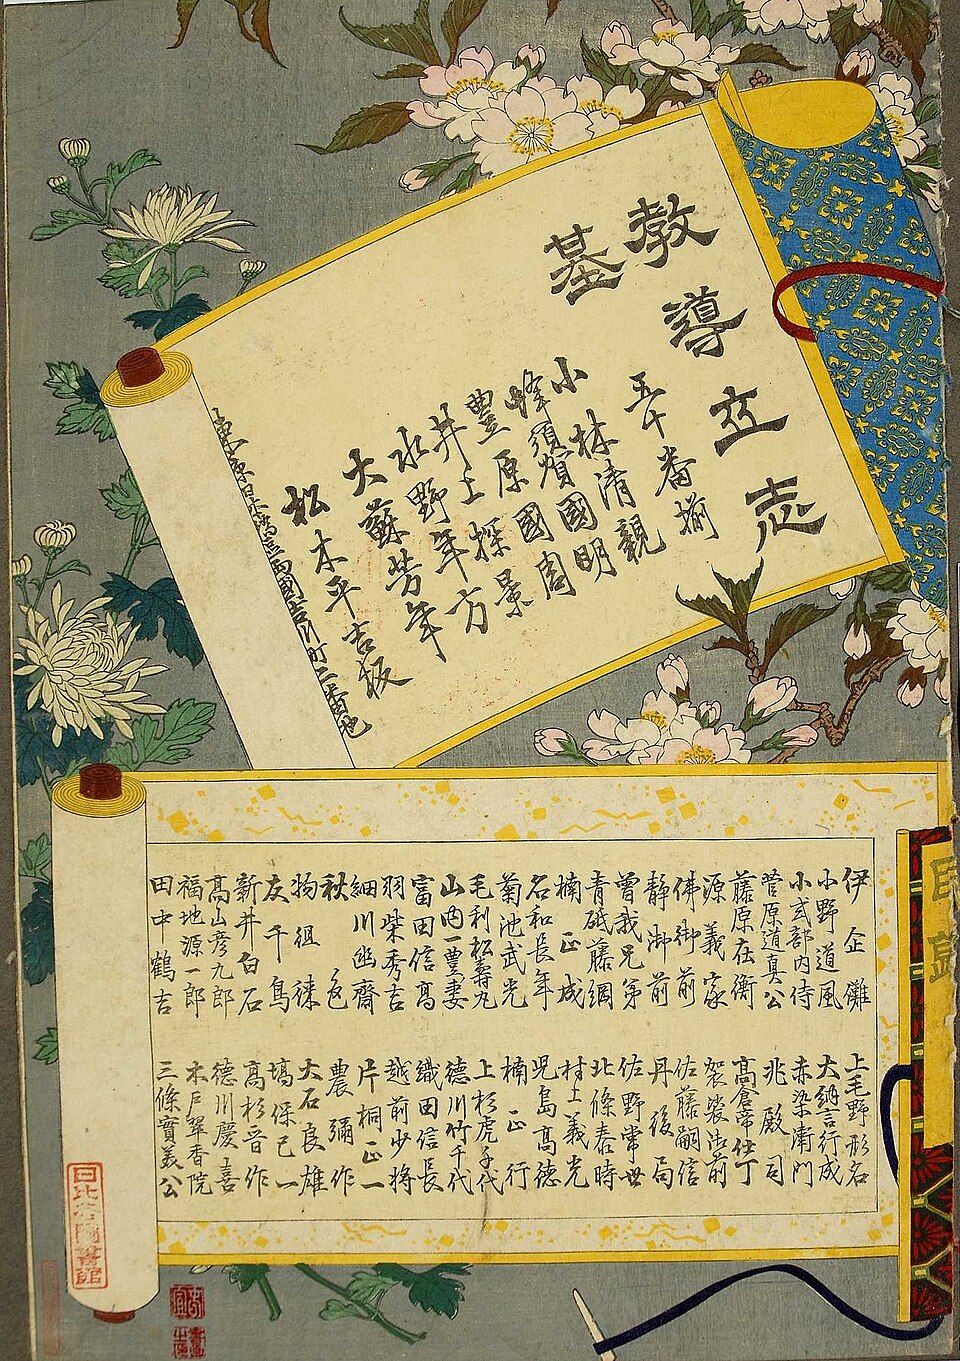 教導立志
基
五十番揃
小林清親
蜂須賀國明
豐原國周
井上探景
水野年方
大蘇芳年
松木平吉板
東京日本橋區兩國吉川町二番地
伊企儺
小野道風
小式部内侍
菅原道真公
藤原在衡
源義家
佛御前
静御前
曾我兄弟
青砥藤綱
楠正成
名和長年
菊池武光
毛利松壽丸
山内一豊妻
富田信高
羽柴秀吉
細川幽齋
秋色
物徂徠
友千鳥
新井白石
高山彦九郎
福地源一郎
田中鶴吉
上毛野形名
大納言行成
赤染衛門
兆殿司
高倉帝仕丁
袈裟御前
佐藤嗣信
丹後局
佐野常世
北條泰時
村上義光
児島高徳
楠正行
上杉虎千代
德川竹千代
織田信長
越前少將
片桐正一
農彌作
大石良雄
塙保己一
高杉晋作
德川慶喜
木戸翠香院
三條實美公
日比谷圖書館